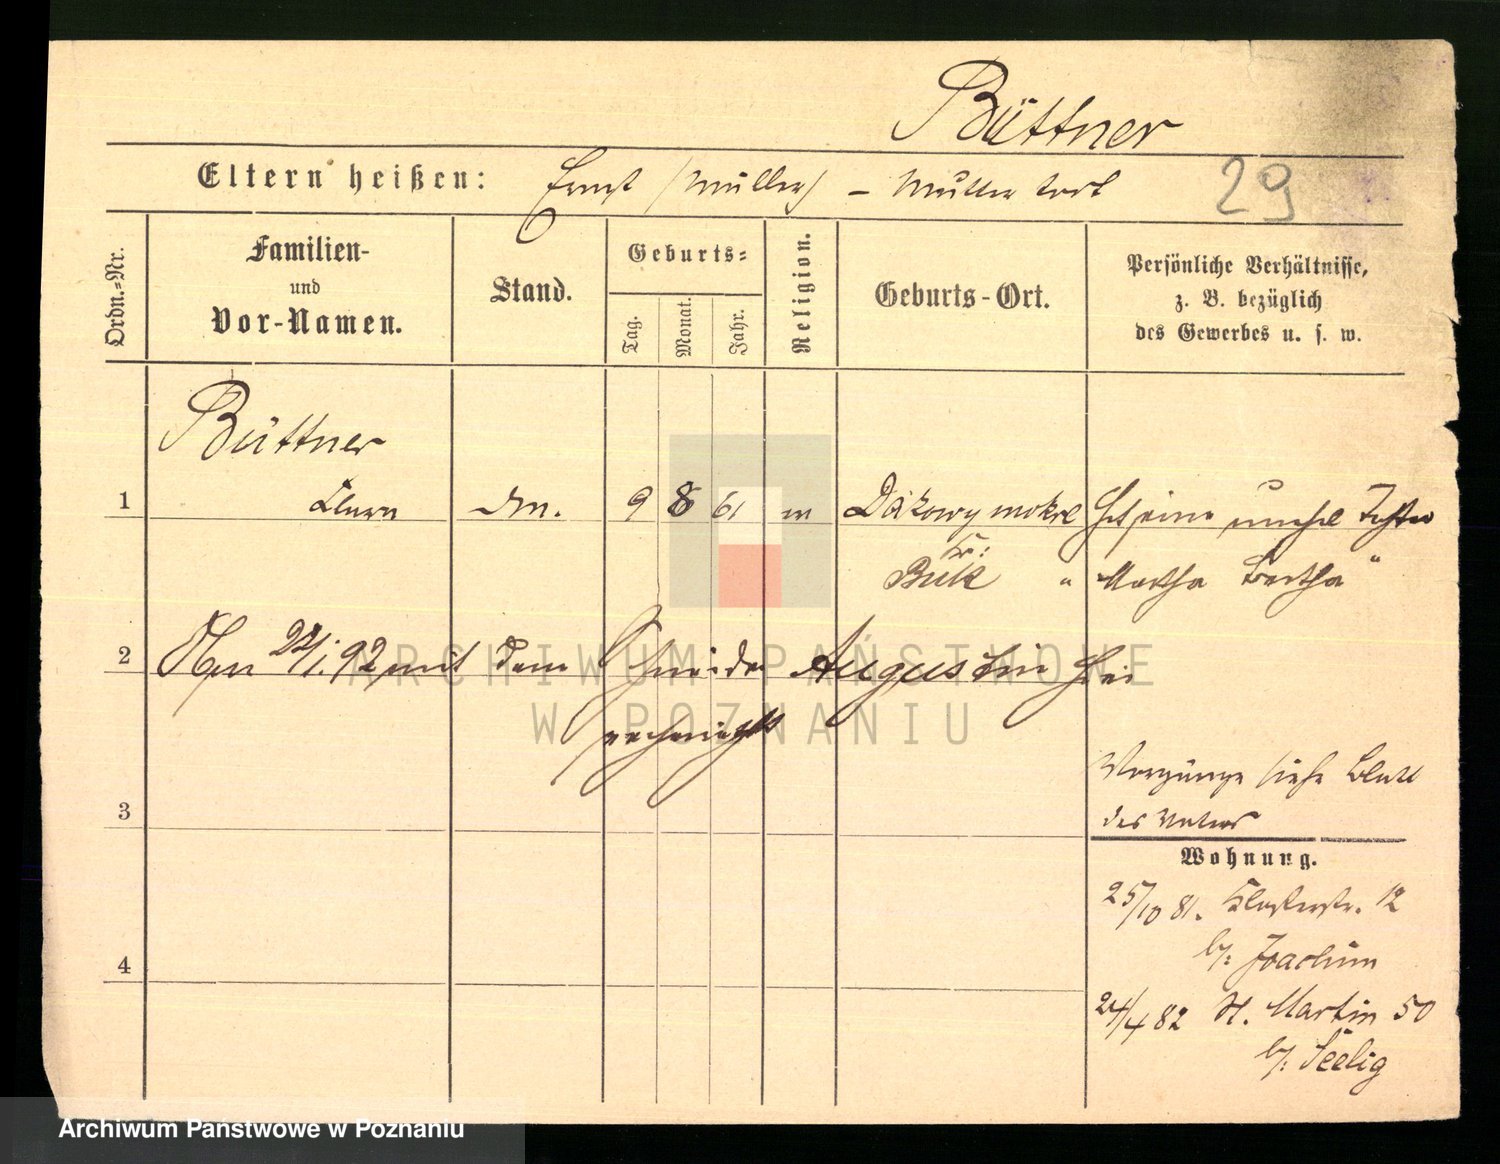 Büttner
Eltern heißen: Ernst (Müller) – Mutter todt
29
Ordn.-Nr.
Familien-
und
Vor-Namen.
Stand.
Geburts-
Tag.
Monat.
Jahr.
Religion.
Geburts-Ort.
Persönliche Verhältnisse,
z. B. bezüglich
des Gewerbes u. s. w.
Büttner
1 Clara 9 8 61 Dakowy mokre Hat eine unehel Tochter
Kr:
Buk " Martha Bertha "
2 92 mit dem Augustin
verheirathet
Vorgänge siehe Blatt
3 des Vaters
Wohnung.
25/10 81. Klosterstr. 12
b/: Joachim
4
24/4 82 St. Martin 50
b/: Seelig
ARCHIWUM PAŃSTWOWE
W POZNANIU
Archiwum Państwowe w Poznaniu